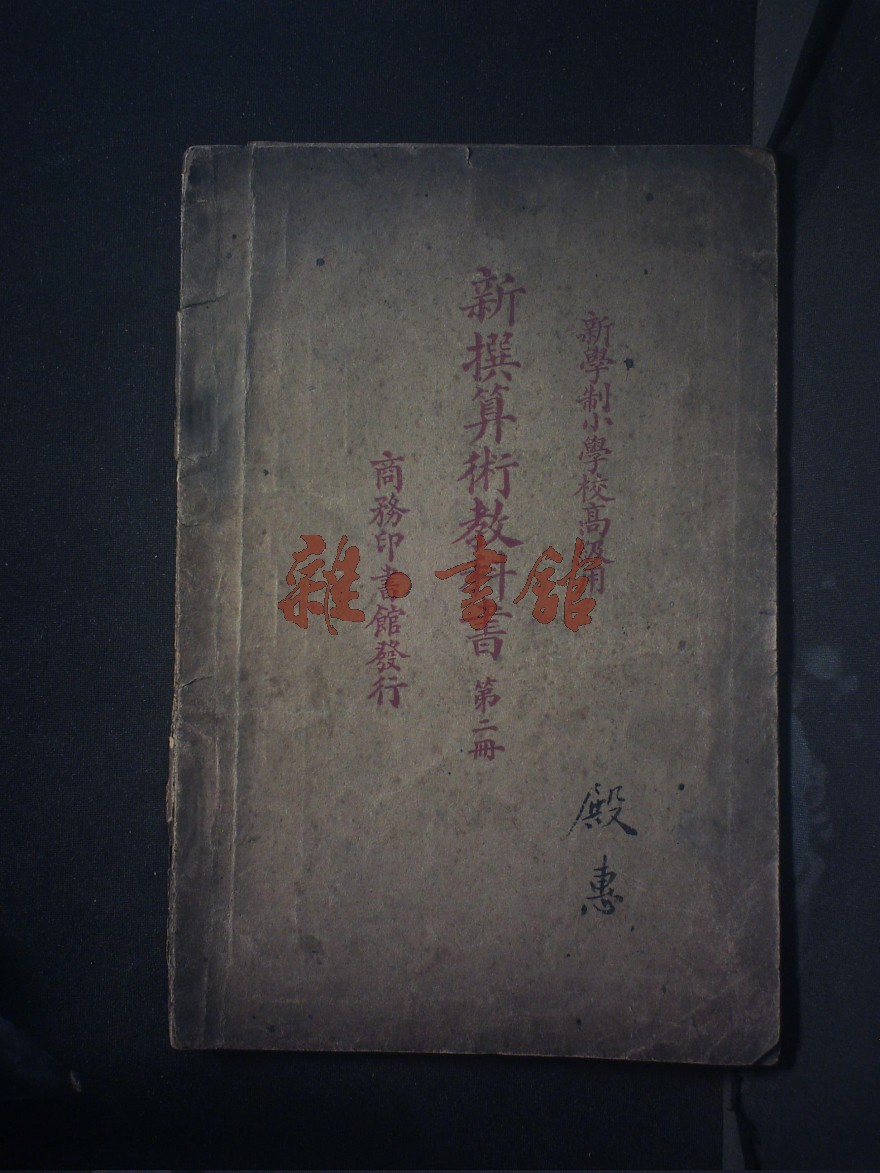 新學制小學校高級用
新撰算術教科書 第二冊
商務印書館發行
殿惠
雜·書館